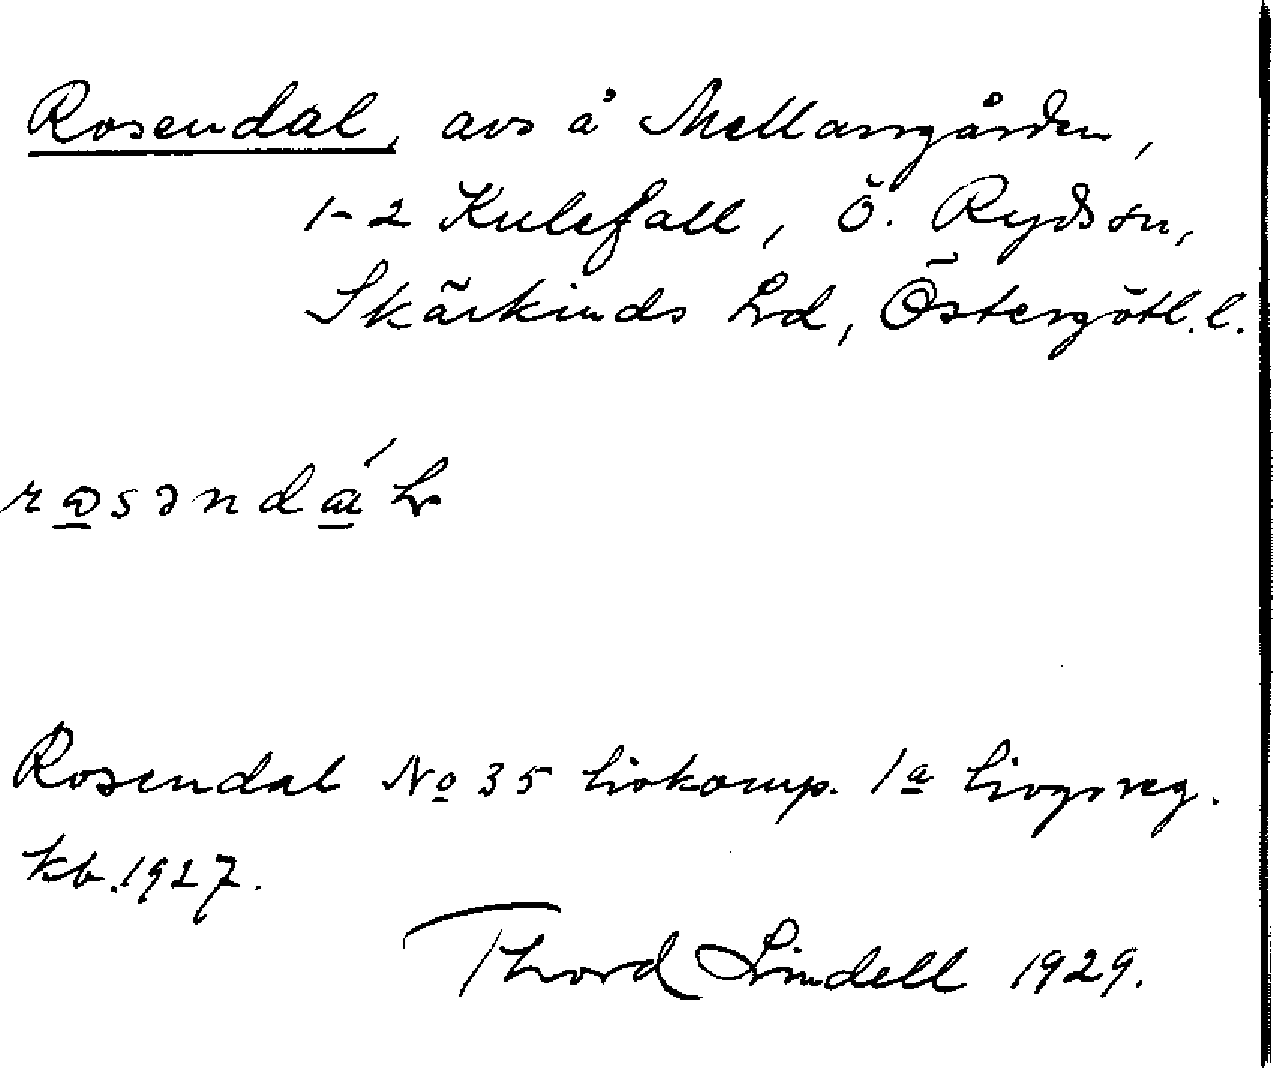 Rosendal, avs å Mellangården,
1-2 Kulefall, Ö. Ryds sn,
Skärkinds hd, Östergötl. l.
Rosendal No 35 Livkomp. 1a Livgr reg.
kb. 1927.
Thord Lindell 1929.